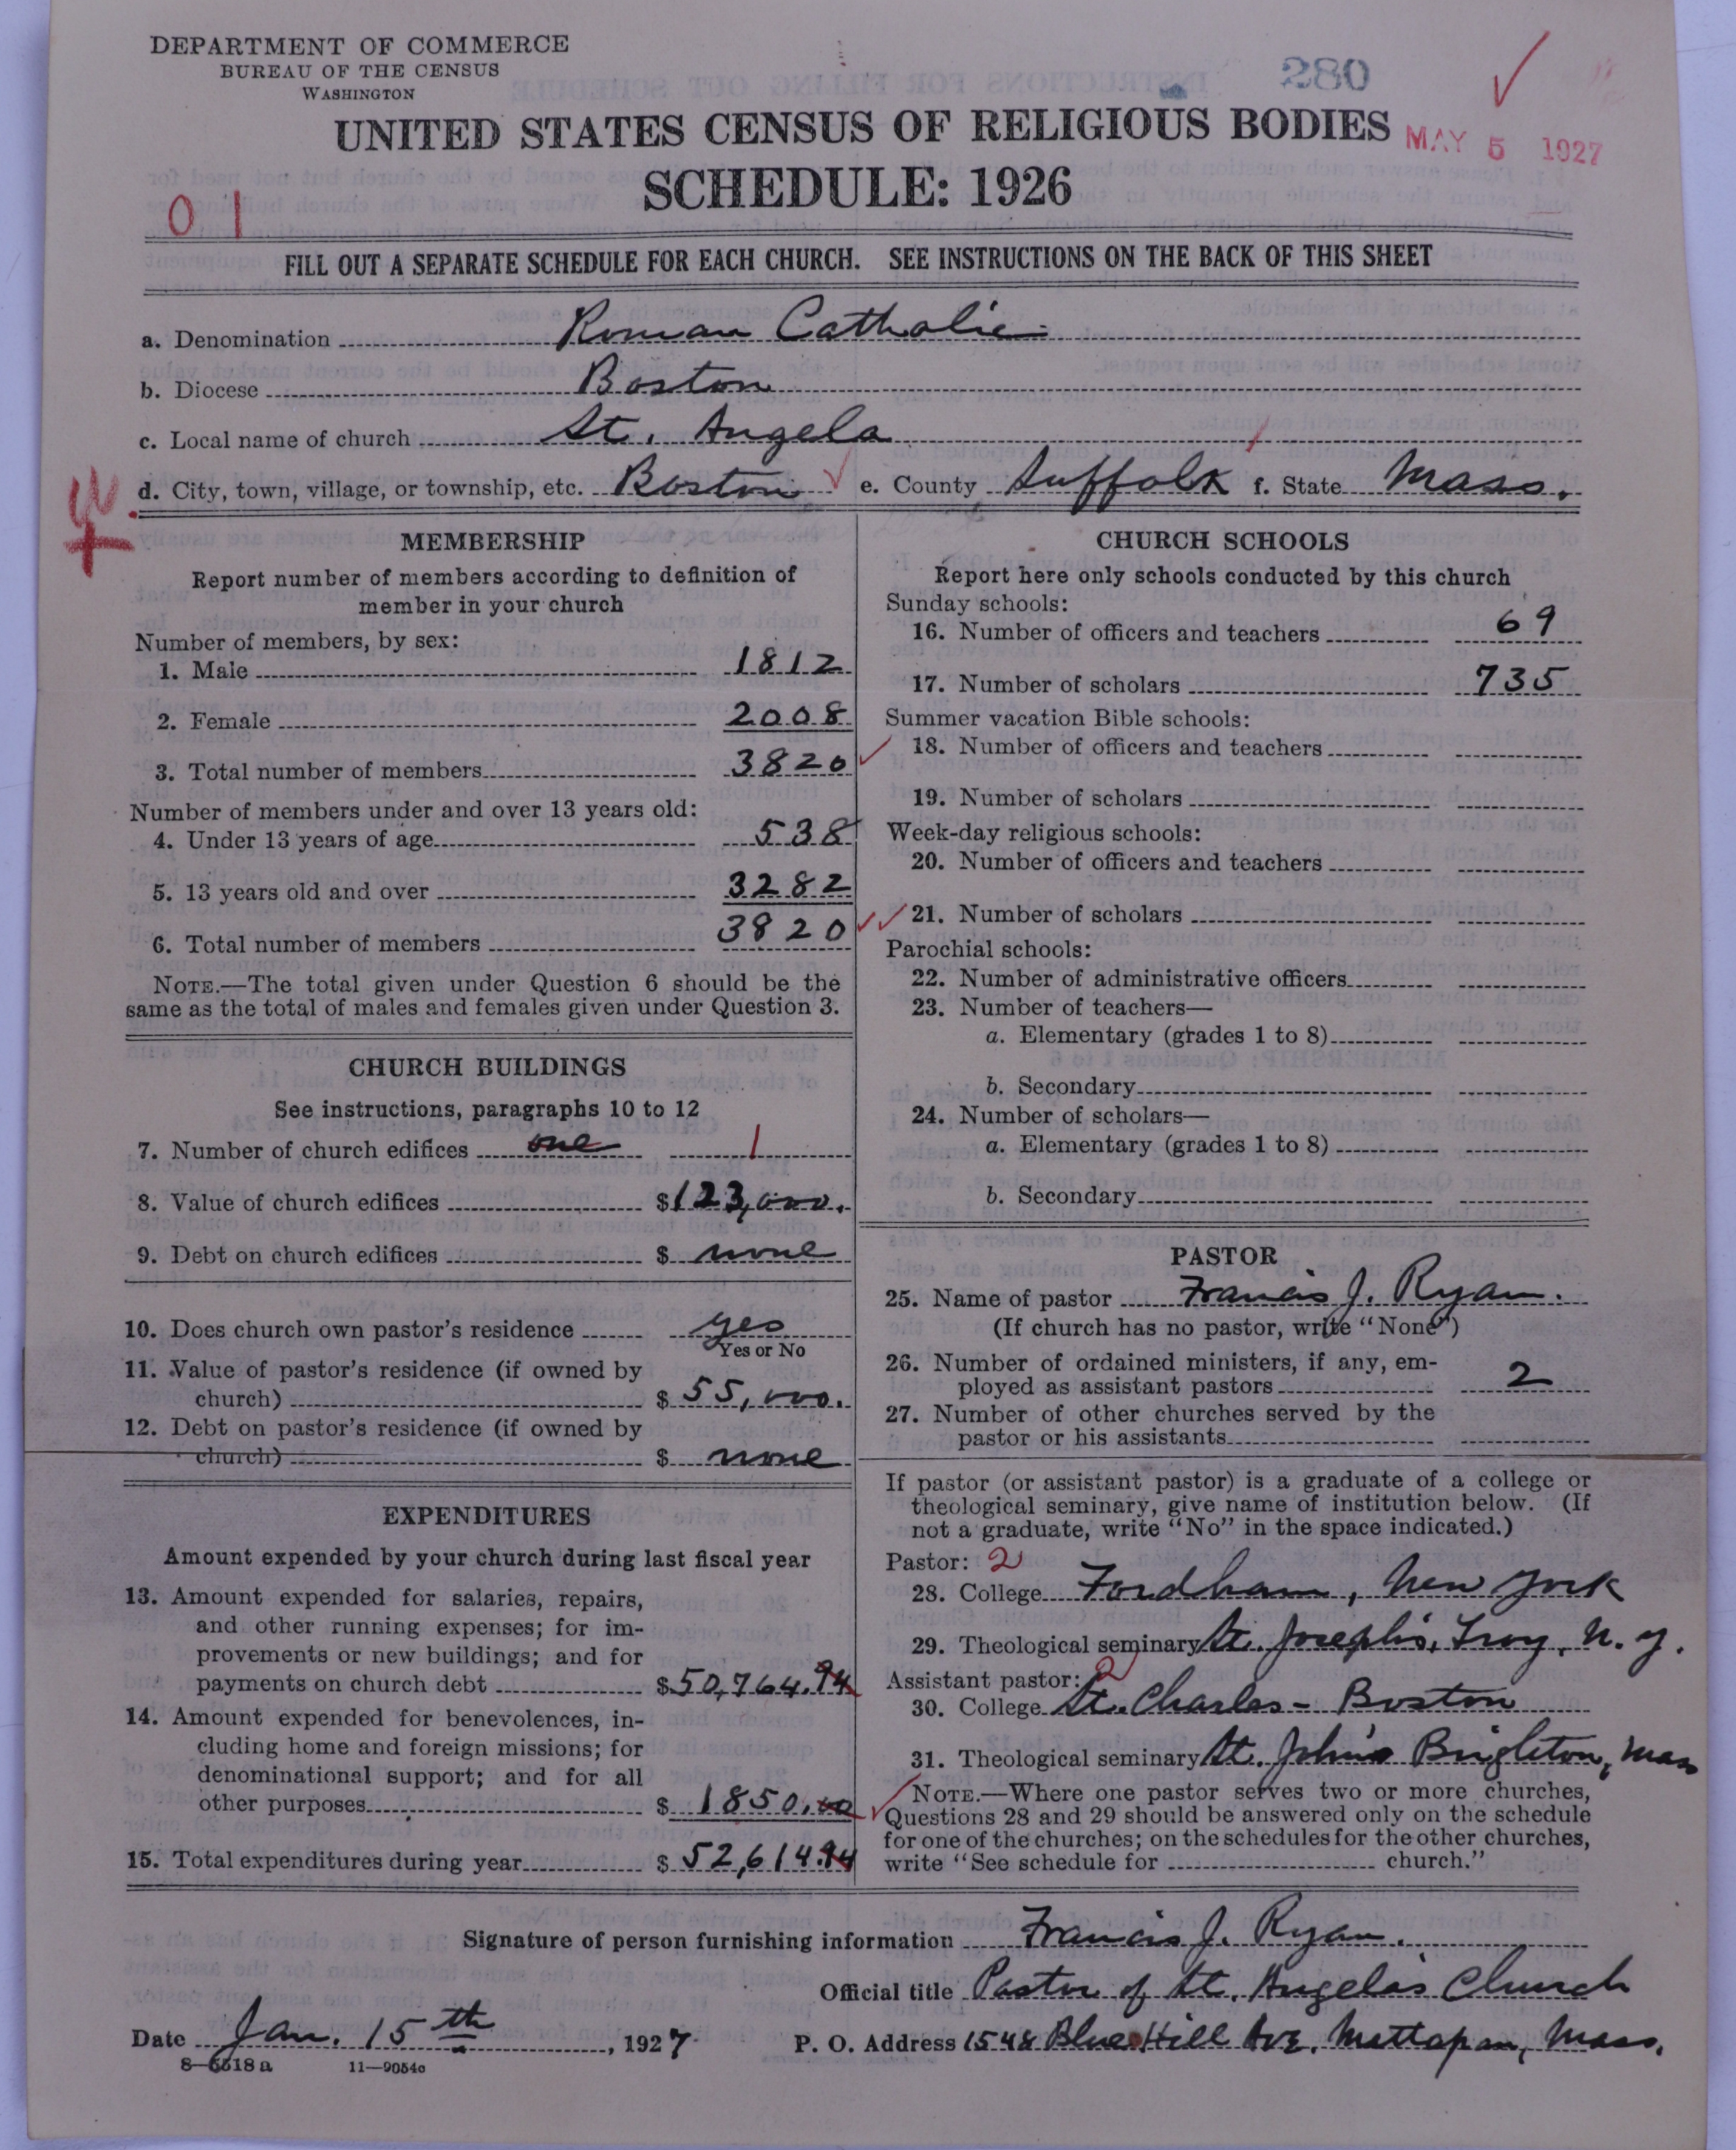 DEPARTMENT OF COMMERCE
BUREAU OF THE CENSUS
WASHINGTON
280
UNITED STATES CENSUS OF RELIGIOUS BODIES
MAY 5 1927
SCHEDULE: 1926
01
FILL OUT A SEPARATE SCHEDULE FOR EACH CHURCH. SEE INSTRUCTIONS ON THE BACK OF THIS SHEET
a. Denomination Roman Catholic
b. Diocese Boston
c. Local name of church St. Angela
d. City, town, village, or township, etc. Boston e. County Suffolk f. State Mass.
MEMBERSHIP
Report number of members according to definition of
member in your church
Number of members, by sex:
1. Male 1812
2. Female 2008
3. Total number of members 3820
Number of members under and over 13 years old:
4. Under 13 years of age 538
5. 13 years old and over 3282
6. Total number of members 3820
NOTE.—The total given under Question 6 should be the
same as the total of males and females given under Question 3.
CHURCH BUILDINGS
See instructions, paragraphs 10 to 12
7. Number of church edifices one 1
8. Value of church edifices $123,000.
9. Debt on church edifices $ none
10. Does church own pastor's residence yes
Yes or No
11. Value of pastor's residence (if owned by
church) $ 55,000.
12. Debt on pastor's residence (if owned by
church) $ none
EXPENDITURES
Amount expended by your church during last fiscal year
13. Amount expended for salaries, repairs,
and other running expenses; for im-
provements or new buildings; and for
payments on church debt $50,764.94
14. Amount expended for benevolences, in-
cluding home and foreign missions; for
denominational support; and for all
other purposes $ 1850.00
15. Total expenditures during year $ 52,614.94
CHURCH SCHOOLS
Report here only schools conducted by this church
Sunday schools:
16. Number of officers and teachers 69
17. Number of scholars 735
Summer vacation Bible schools:
18. Number of officers and teachers
19. Number of scholars
Week-day religious schools:
20. Number of officers and teachers
21. Number of scholars
Parochial schools:
22. Number of administrative officers
23. Number of teachers—
a. Elementary (grades 1 to 8)
b. Secondary
24. Number of scholars—
a. Elementary (grades 1 to 8)
b. Secondary
PASTOR
25. Name of pastor Francis J. Ryan.
(If church has no pastor, write "None")
26. Number of ordained ministers, if any, em-
ployed as assistant pastors 2
27. Number of other churches served by the
pastor or his assistants
If pastor (or assistant pastor) is a graduate of a college or
theological seminary, give name of institution below. (If
not a graduate, write "No" in the space indicated.)
Pastor: 2
28. College Fordham, New York
29. Theological seminary St. Joseph's, Troy, N. Y.
Assistant pastor: 2
30. College St. Charles - Boston
31. Theological seminary St. John's Brighton, Mass
NOTE.—Where one pastor serves two or more churches,
Questions 28 and 29 should be answered only on the schedule
for one of the churches; on the schedules for the other churches,
write "See schedule for church."
Signature of person furnishing information Francis J. Ryan.
Official title Pastor of St. Angela's Church
Date Jan. 15th, 1927. P. O. Address 1548 Blue Hill Ave. Mattapan, Mass.
8—5518a 11—9054c